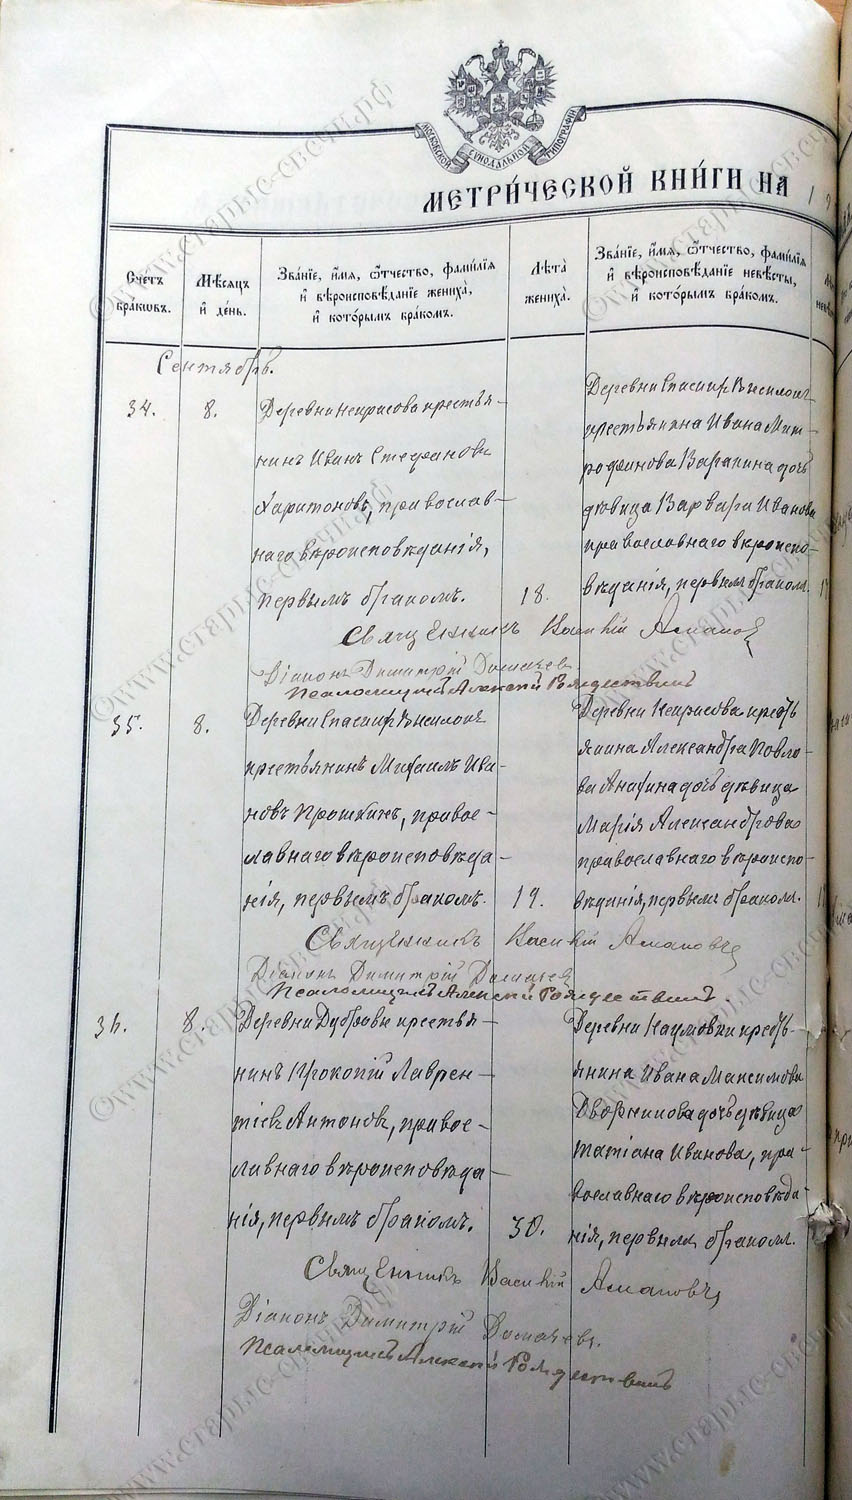 МОСКОВСКОЙ СУНОДАЛЬНОЙ ТИПОГРАФІИ
МЕТРИ́ЧЕСКОЙ КНИ́ГИ НА 19
Счетъ бра́кωвъ.
Мѣ́сяцъ и҆ де́нь.
Зва́нїе, и҆́мя, ѻ҆́тчество, фамѵ́лїя
и҆ вѣроисповѣ́данїе жениха̀,
и҆ кото́рымъ бра́комъ.
Лѣ́та жениха̀.
Зва́нїе, и҆́мя, ѻ҆́тчество, фамѵ́лїя
и҆ вѣроисповѣ́данїе невѣ́сты,
и҆ кото́рымъ бра́комъ.
Сентябрь.
34.
8.
Деревни Некрасова крестья-
нинъ Иванъ Стефановъ
Харитоновъ, православ-
наго вѣроисповѣданія,
первымъ бракомъ.
18.
Деревни
крестьянина Ивана Мит-
рофанова дочь
дѣвица Варвара Иванова
православнаго вѣроиспо-
вѣданія, первым браком.
Священникъ Василій
Діаконъ Димитрій
Псаломщикъ Алексій Рождественскій
35.
8.
Деревни
крестьянинъ Михаилъ Ива-
новъ Прошкинъ, правос-
лавнаго вѣроисповѣда-
нія, первымъ бракомъ.
19.
Деревни Некрасова кресть
янина Александра Павло-
ва дочь дѣвица
Марія Александрова
православнаго вѣроиспо-
вѣданія, первым браком.
Священникъ Василій
Діаконъ Димитрій
Псаломщикъ Алексій Рождественскій.
36.
8.
Деревни Дубровы крестья-
нинъ Прокопій Лаврен-
тіевъ Антоновъ, правос-
лавнаго вѣроисповѣда-
нія, первымъ бракомъ.
30.
Деревни Наумовки кресть-
янина Ивана Максимова
Дворникова дочь дѣвица
Татіана Иванова, пра-
вославнаго вѣроисповѣда-
нія, первым браком.
Священникъ Василій
Діаконъ Димитрій
Псаломщикъ Алексій Рождественскій
©www.старые-свечи.рф